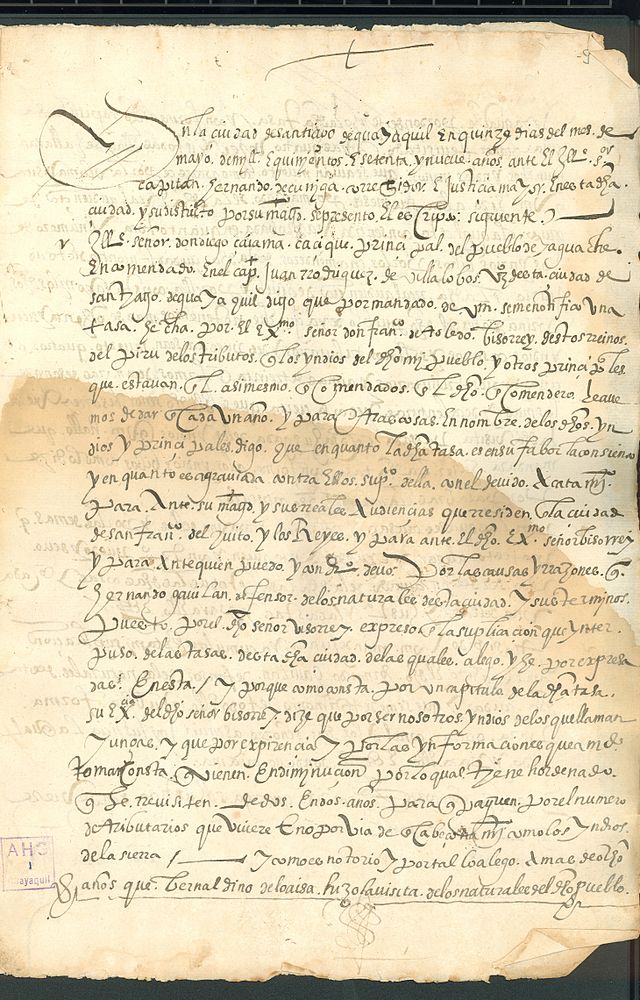 En la ciudad de santiago de guayaquil En quinze dias del mes de
mayo de mill E quinientos E setenta y nueve años ante El Ille sor
capitan hernando de cuñiga corregidor E justicia mayor En esta dha
ciudad y su distrito por su magd se presento El escripto siguiente
Ille señor don diego cayama cacique principal del pueblo de yaguache
Encomendado En el capn Juan rrodriguez de villalobos vzo desta ciudad de
santiago de guayaquil digo que por mandado de vm se me notifico una
tasa hecha por El Exmo señor don franco de toledo bisorrey destos reinos
del piru de los tributos q los yndios del dho mi pueblo y otros principales
que estavan asimesmo Encomendados En El dho Encomendero le ave
mos de dar En cada un año y para otras cosas En nombre de los dhos yn
dios y principales digo que En quanto la dha tasa es en su fabor la consiento
y en quanto es agraviada contra Ellos supco della con el devido acatamjo
para Ante su magd y sus reales Audiencias que rresiden En la ciudad
de san franco del quito y los Reyes y para ante El dho Exmo señor bisorrey
y para Ante quien puedo y con dro devo por las causas y rrazones q
hernando gavilan defensor de los naturales desta ciudad y sus terminos
puesto por El dho señor visorrey expreso En la suplicacion que ynter
puso de las tasas desta dha ciudad de las quales alego y he por expresa
das En esta / y porque como consta por un capitulo de la dha tasa
su Exa del dho señor bisorrey dize que por ser nosotros yndios de los que llaman
yungas y que por expirencia y por las ynformaciones que a mdo
tomar consta q vienen En diminucion por lo qual tiene hordenado
q se rrevisiten de dos En dos años para q paguen por el numero
de tributarios que uviere E no por via de Encabeçonamjo como los yndios
de la sierra / y como es notorio y por tal lo alego a mas de ocho
años que bernaldino de loaisa hizo la visita de los naturales del dho pueblo
AHG
ayaquil